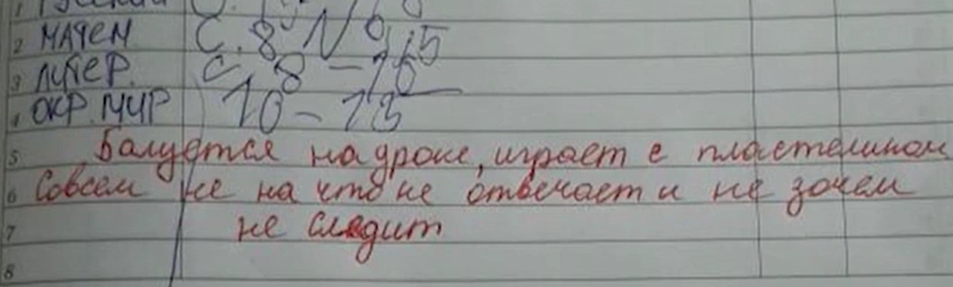 2 МАТЕМ С. 8 N 9,15
3 ЛИТЕР. с. 8 - 16
4 ОКР. МИР 10 - 13
5 Балуется на уроке, играет с пластелином
6 Совсем не на что не отвечает и не зачем
7 не следит
8